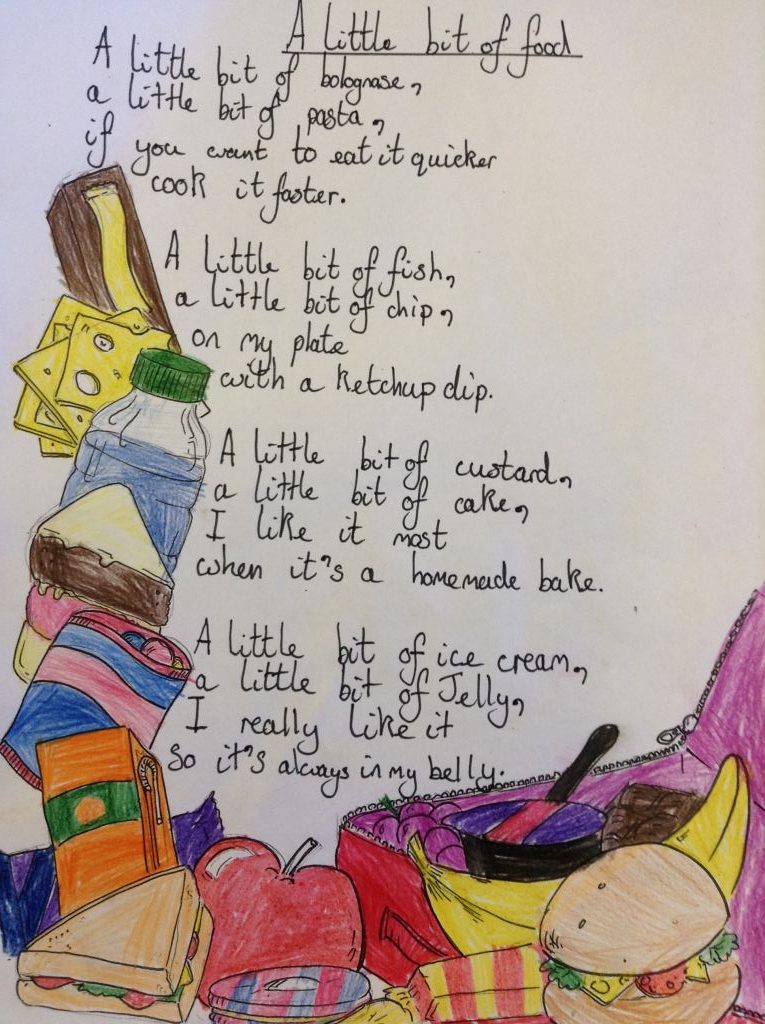 A little bit of food
A little bit of bolognase,
a little bit of pasta,
if you want to eat it quicker
cook it faster.
A little bit of fish,
a little bit of chip,
on my plate
with a ketchup dip.
A little bit of custard,
a little bit of cake,
I like it most
when it's a homemade bake.
A little bit of ice cream,
a little bit of Jelly,
I really like it
So it's always in my belly.